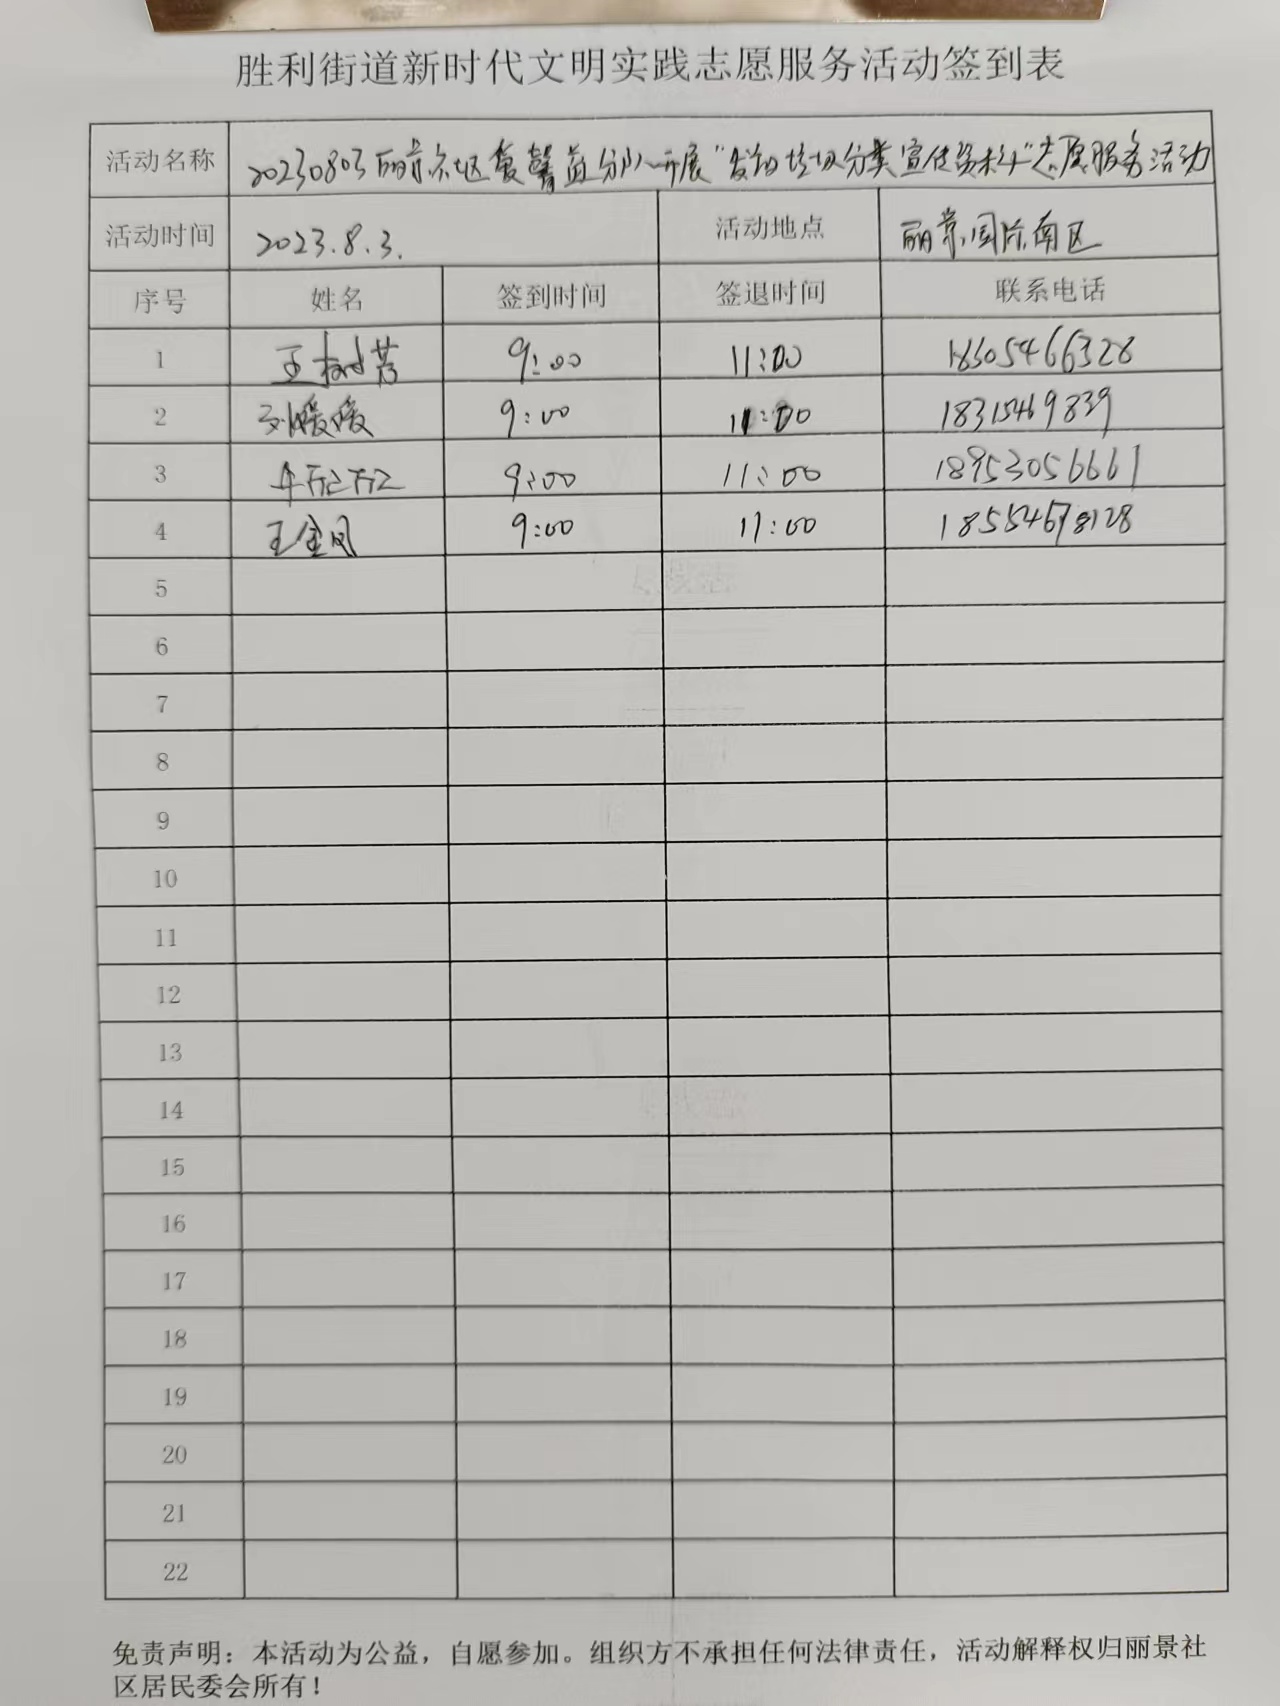 胜利街道新时代文明实践志愿服务活动签到表
活动名称 20230803丽景社区爱馨益分队开展"发放垃圾分类宣传资料"志愿服务活动
活动时间 2023.8.3. 活动地点 丽景园际南区
序号 姓名 签到时间 签退时间 联系电话
1 王树芳 9:00 11:00 18305466328
2 刘暖暖 9:00 11:00 18315469839
3 9:00 11:00 18953056661
4 王金凤 9:00 11:00 18554678128
5
6
7
8
9
10
11
12
13
14
15
16
17
18
19
20
21
22
免责声明：本活动为公益，自愿参加。组织方不承担任何法律责任，活动解释权归丽景社
区居民委会所有！